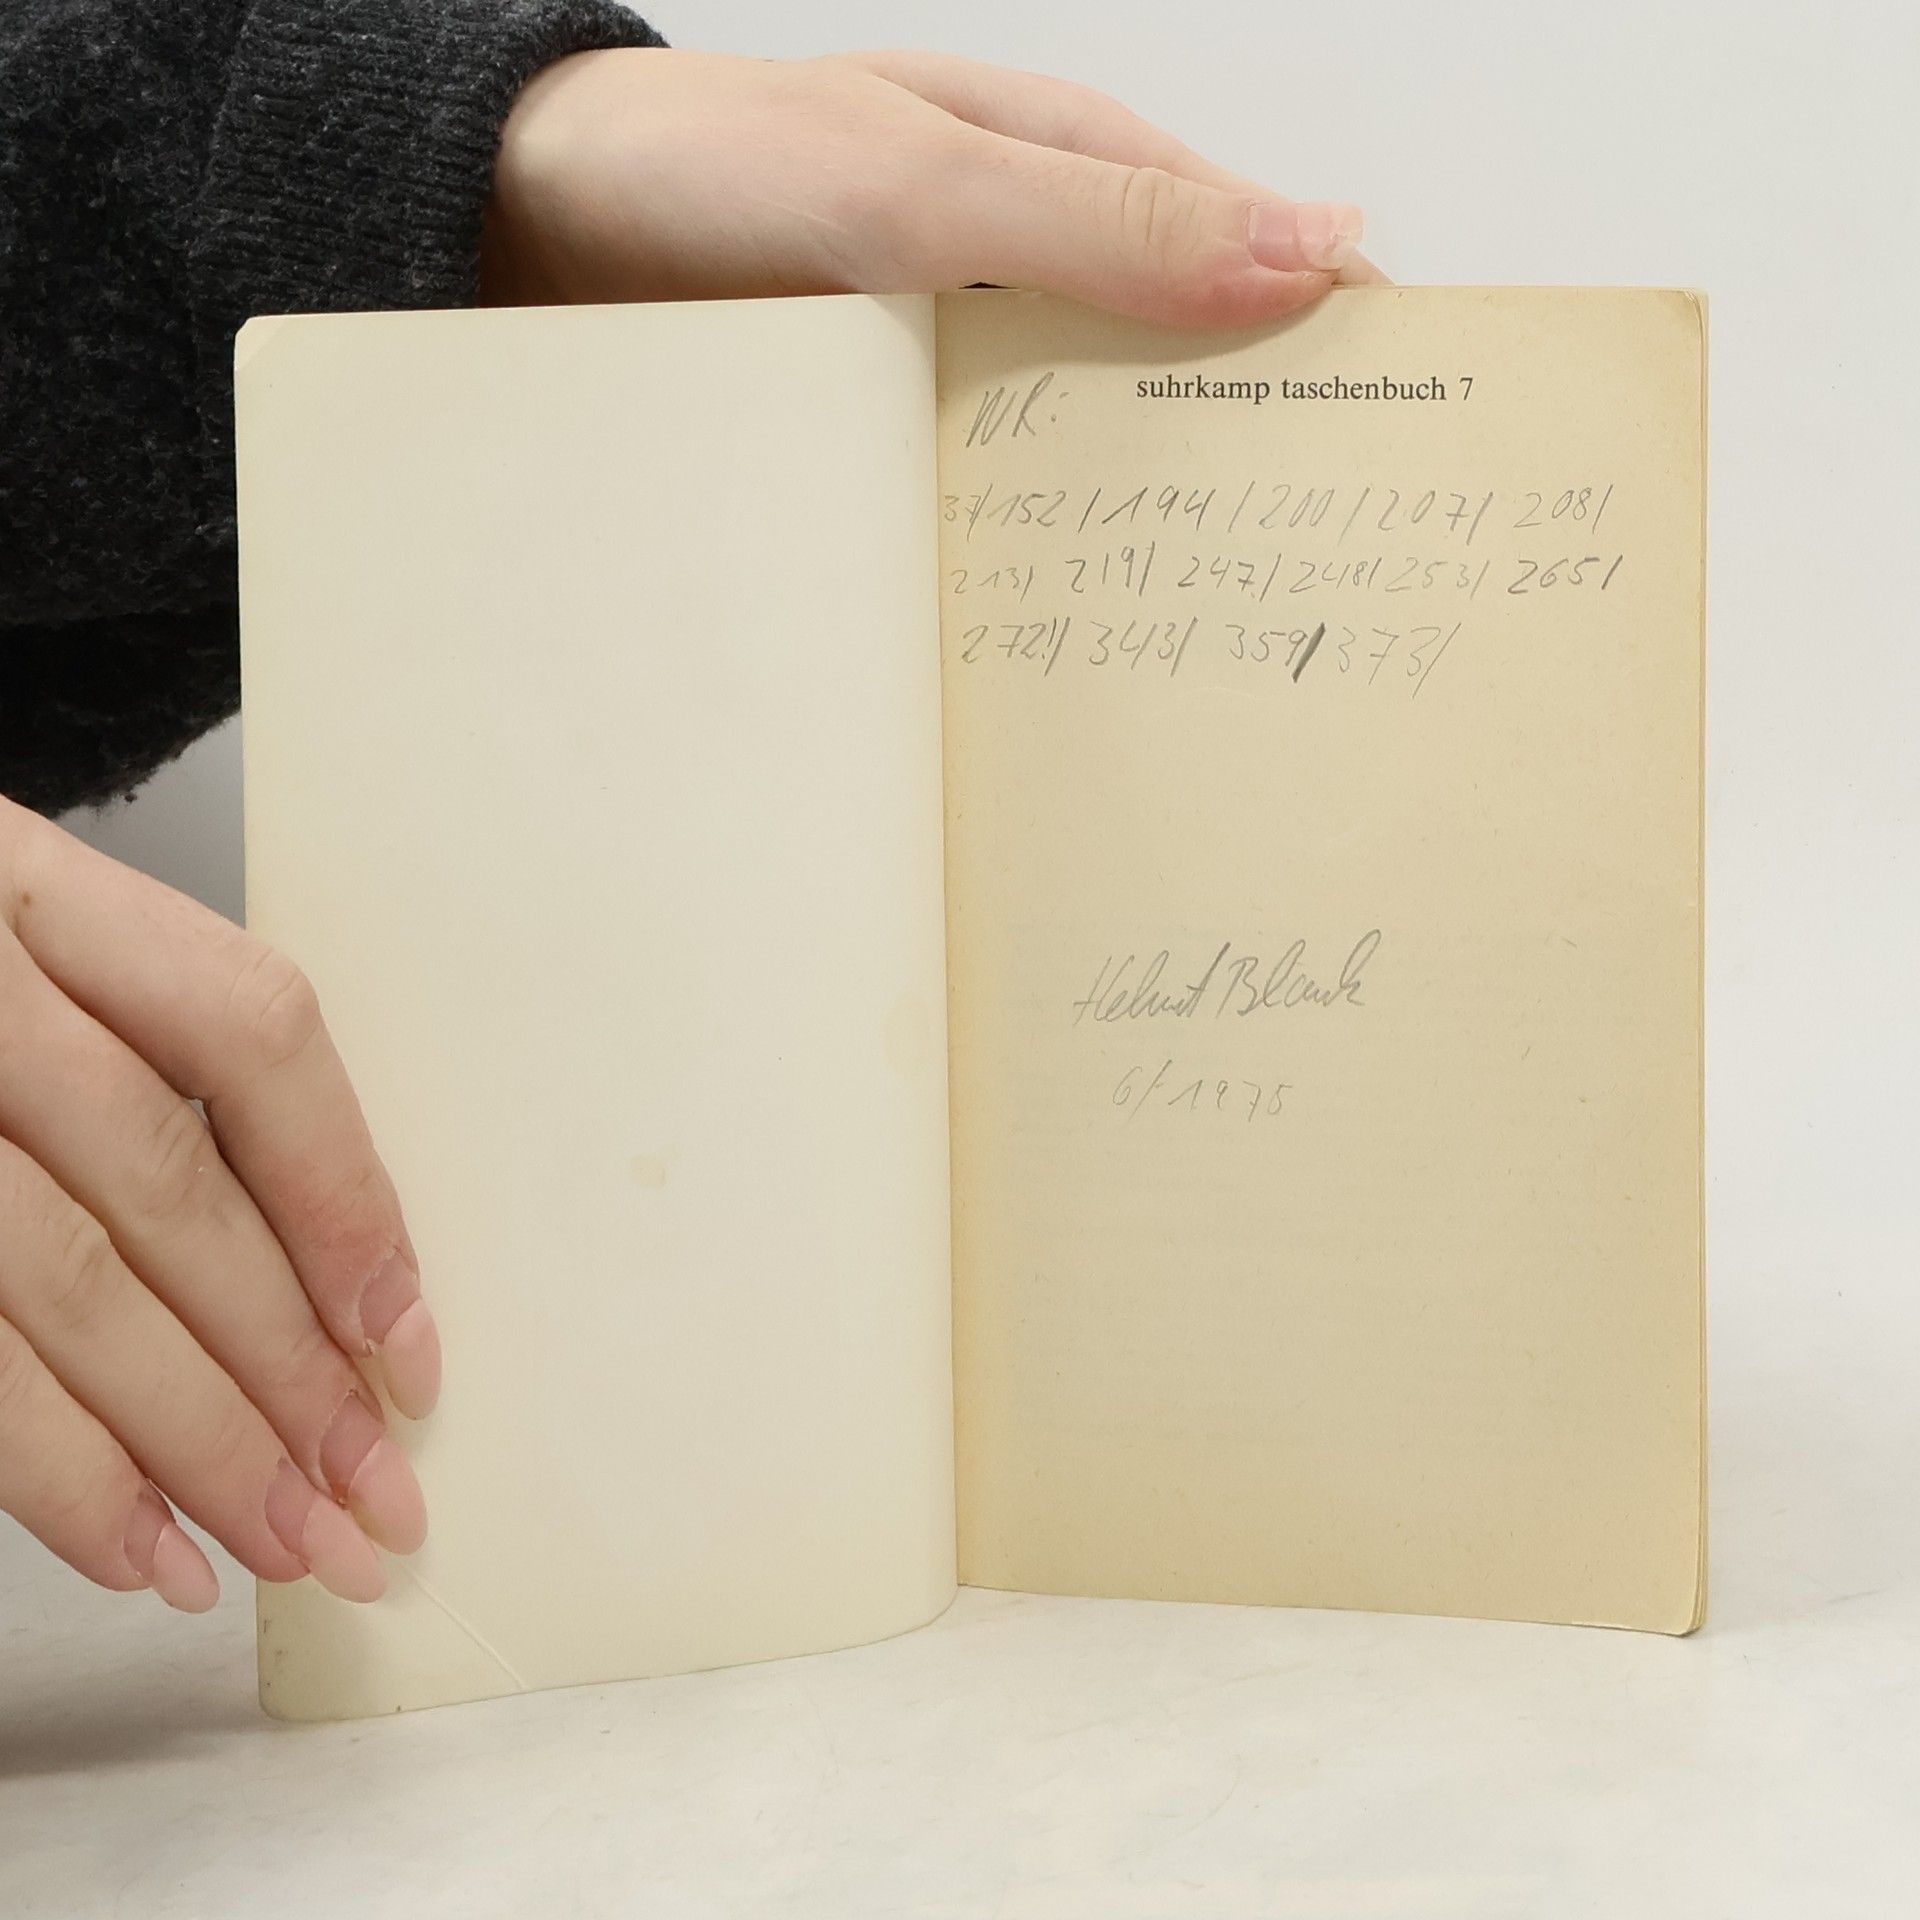 suhrkamp taschenbuch 7
WR:
37/152/194/200/207/208/
213/ 219/ 247/248/253/265/
272!/ 343/ 359/373/
Helmut Blank
6/1975